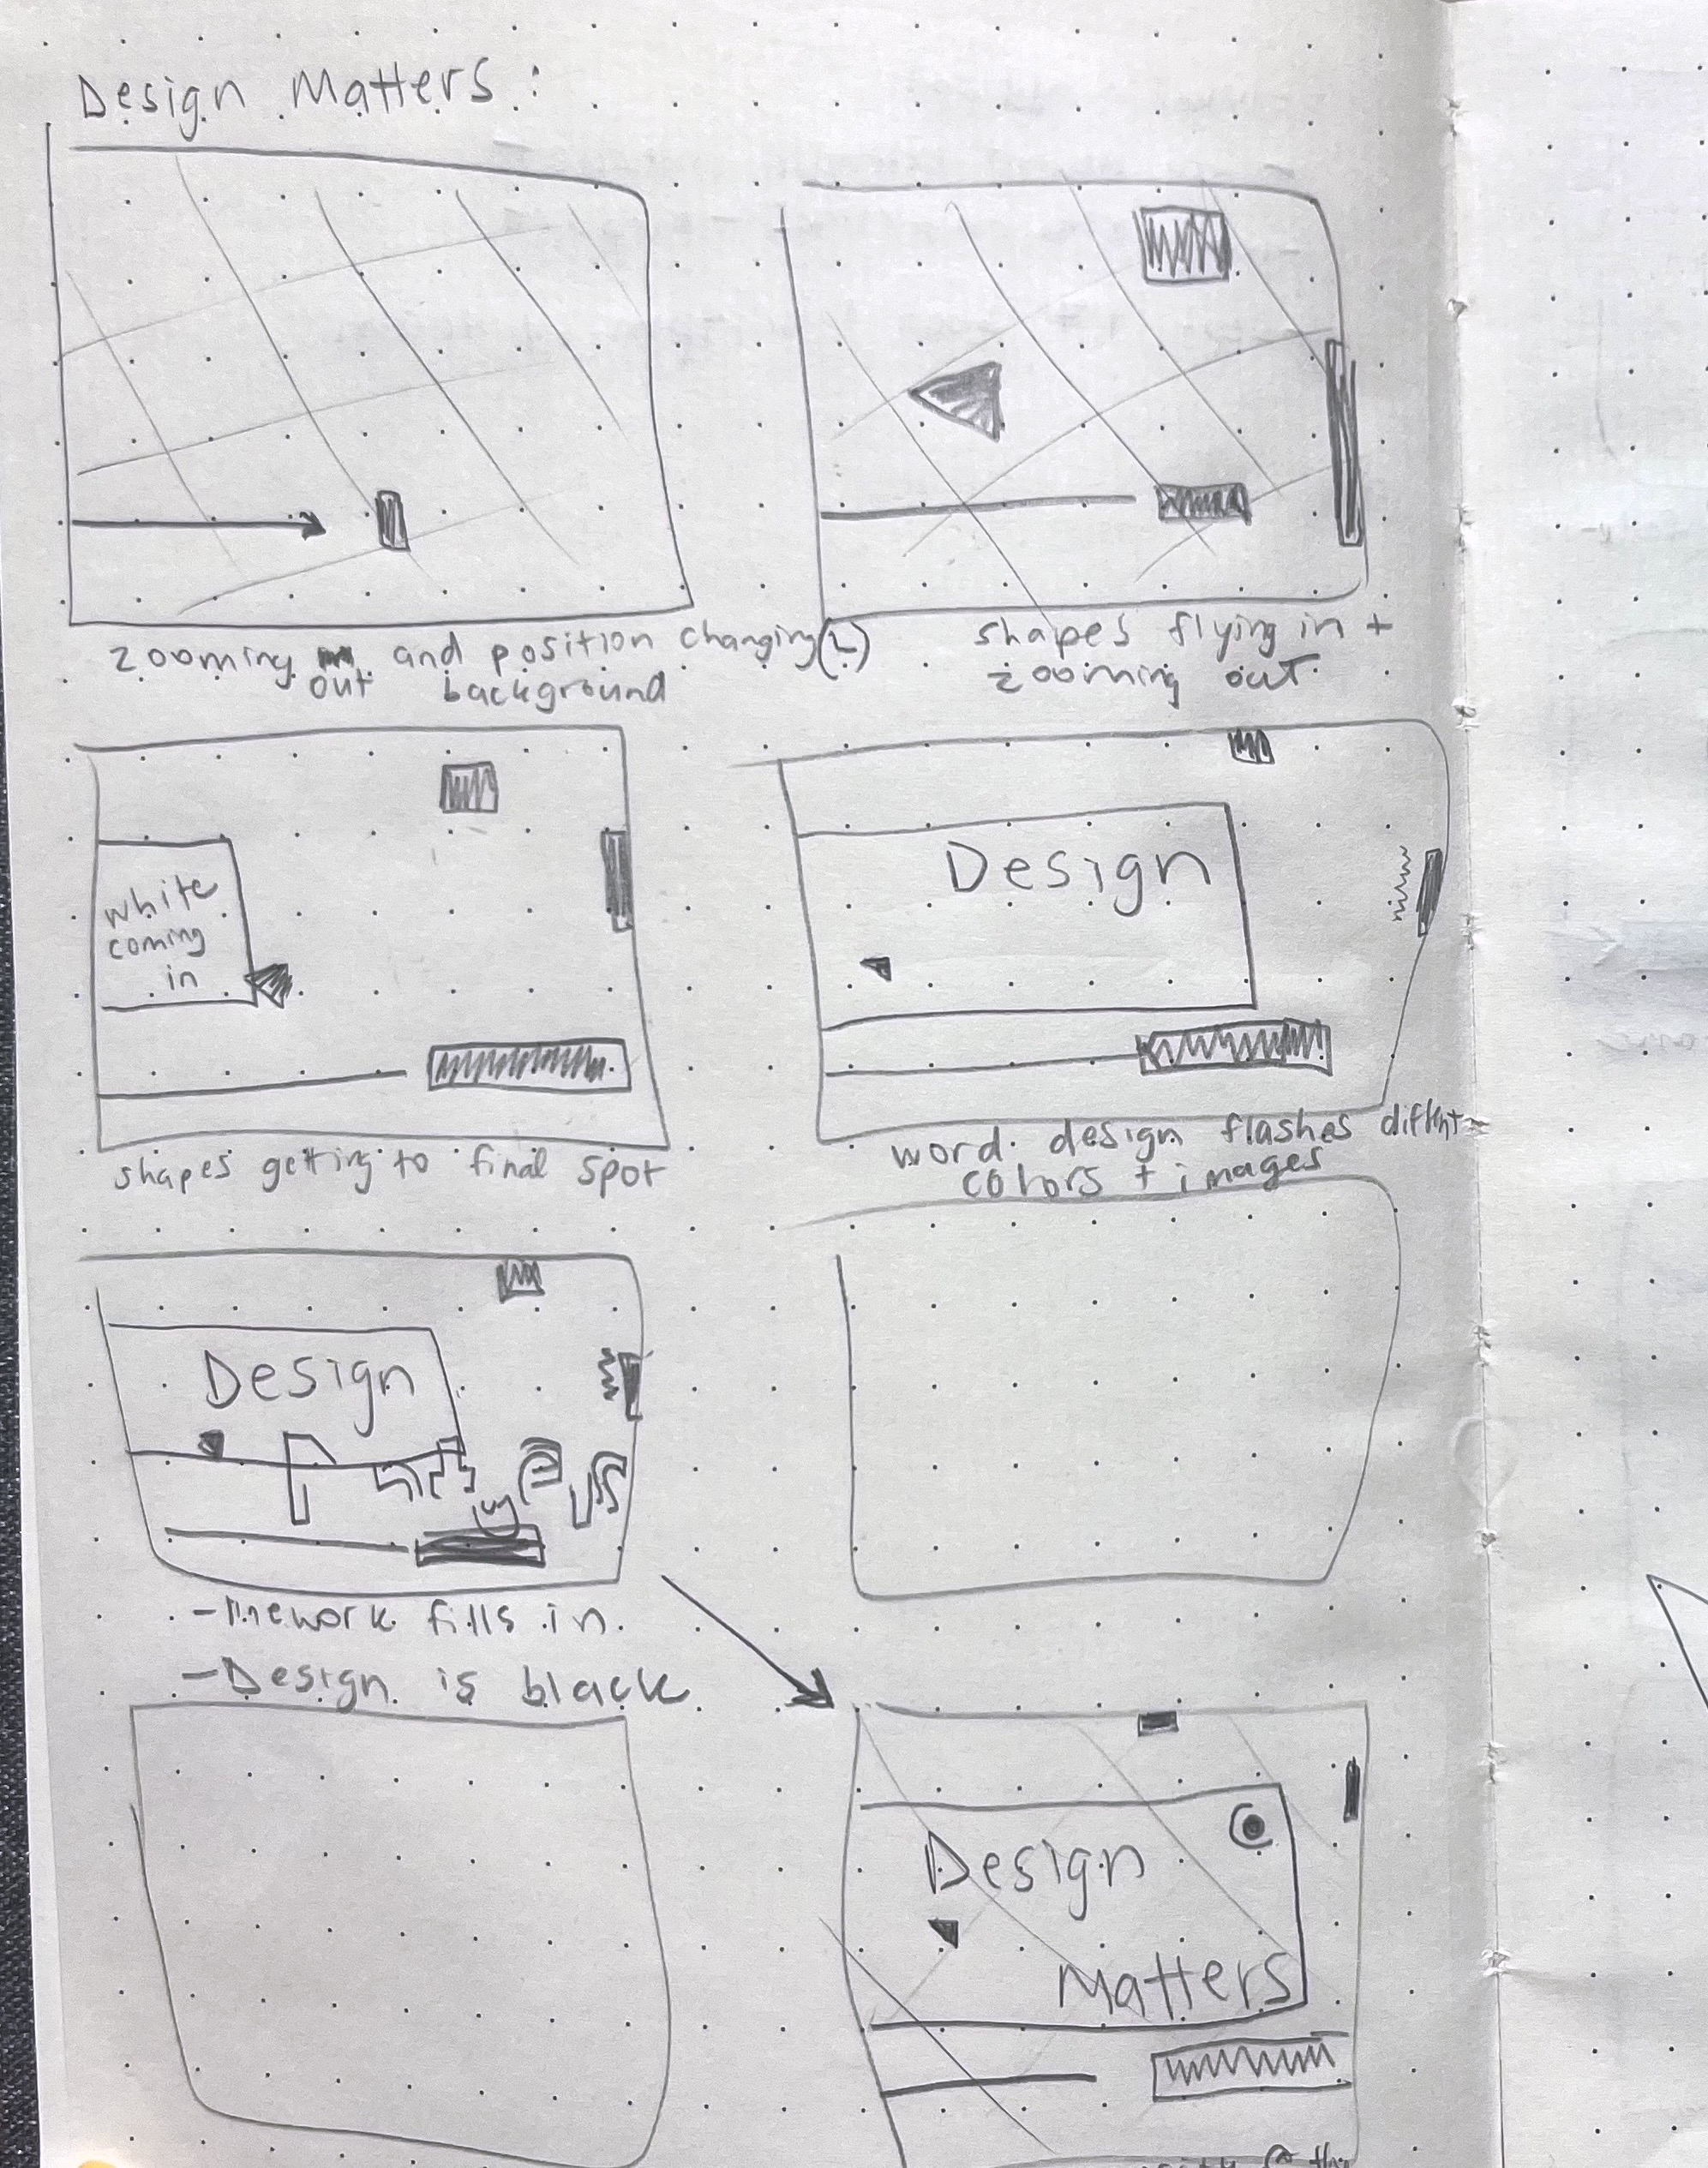 Design Matters:
zooming out and position changing
background
shapes flying in +
zooming out
white
coming
in
shapes getting to final spot
Design
word design flashes
colors + images
Design
- linework fills in
- Design is black
Design
Matters